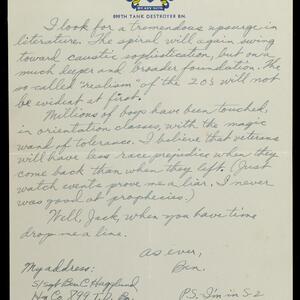 899TH TANK DESTROYER BN.
I look for a tremendous upsurge in
literature. The spiral will again swing
toward caustic sophistication, but on a
much deeper and broader foundation. The
so called "realism" of the 20s will not
be evident at first.
Millions of boys have been touched,
in orientation classes with the magic
wand of tolerance. I believe that veterans
will have less race prejudice when they
come back than when they left. (Just
watch events prove me a liar. I never
was good at prophecies)
Well, Jack, when you have time
drop me a line.
As ever,
Ben.
My address:
S/Sgt Ben C. Hagglund
Hq Co. 899 T.D. Bn.
PS. I'm in S-2